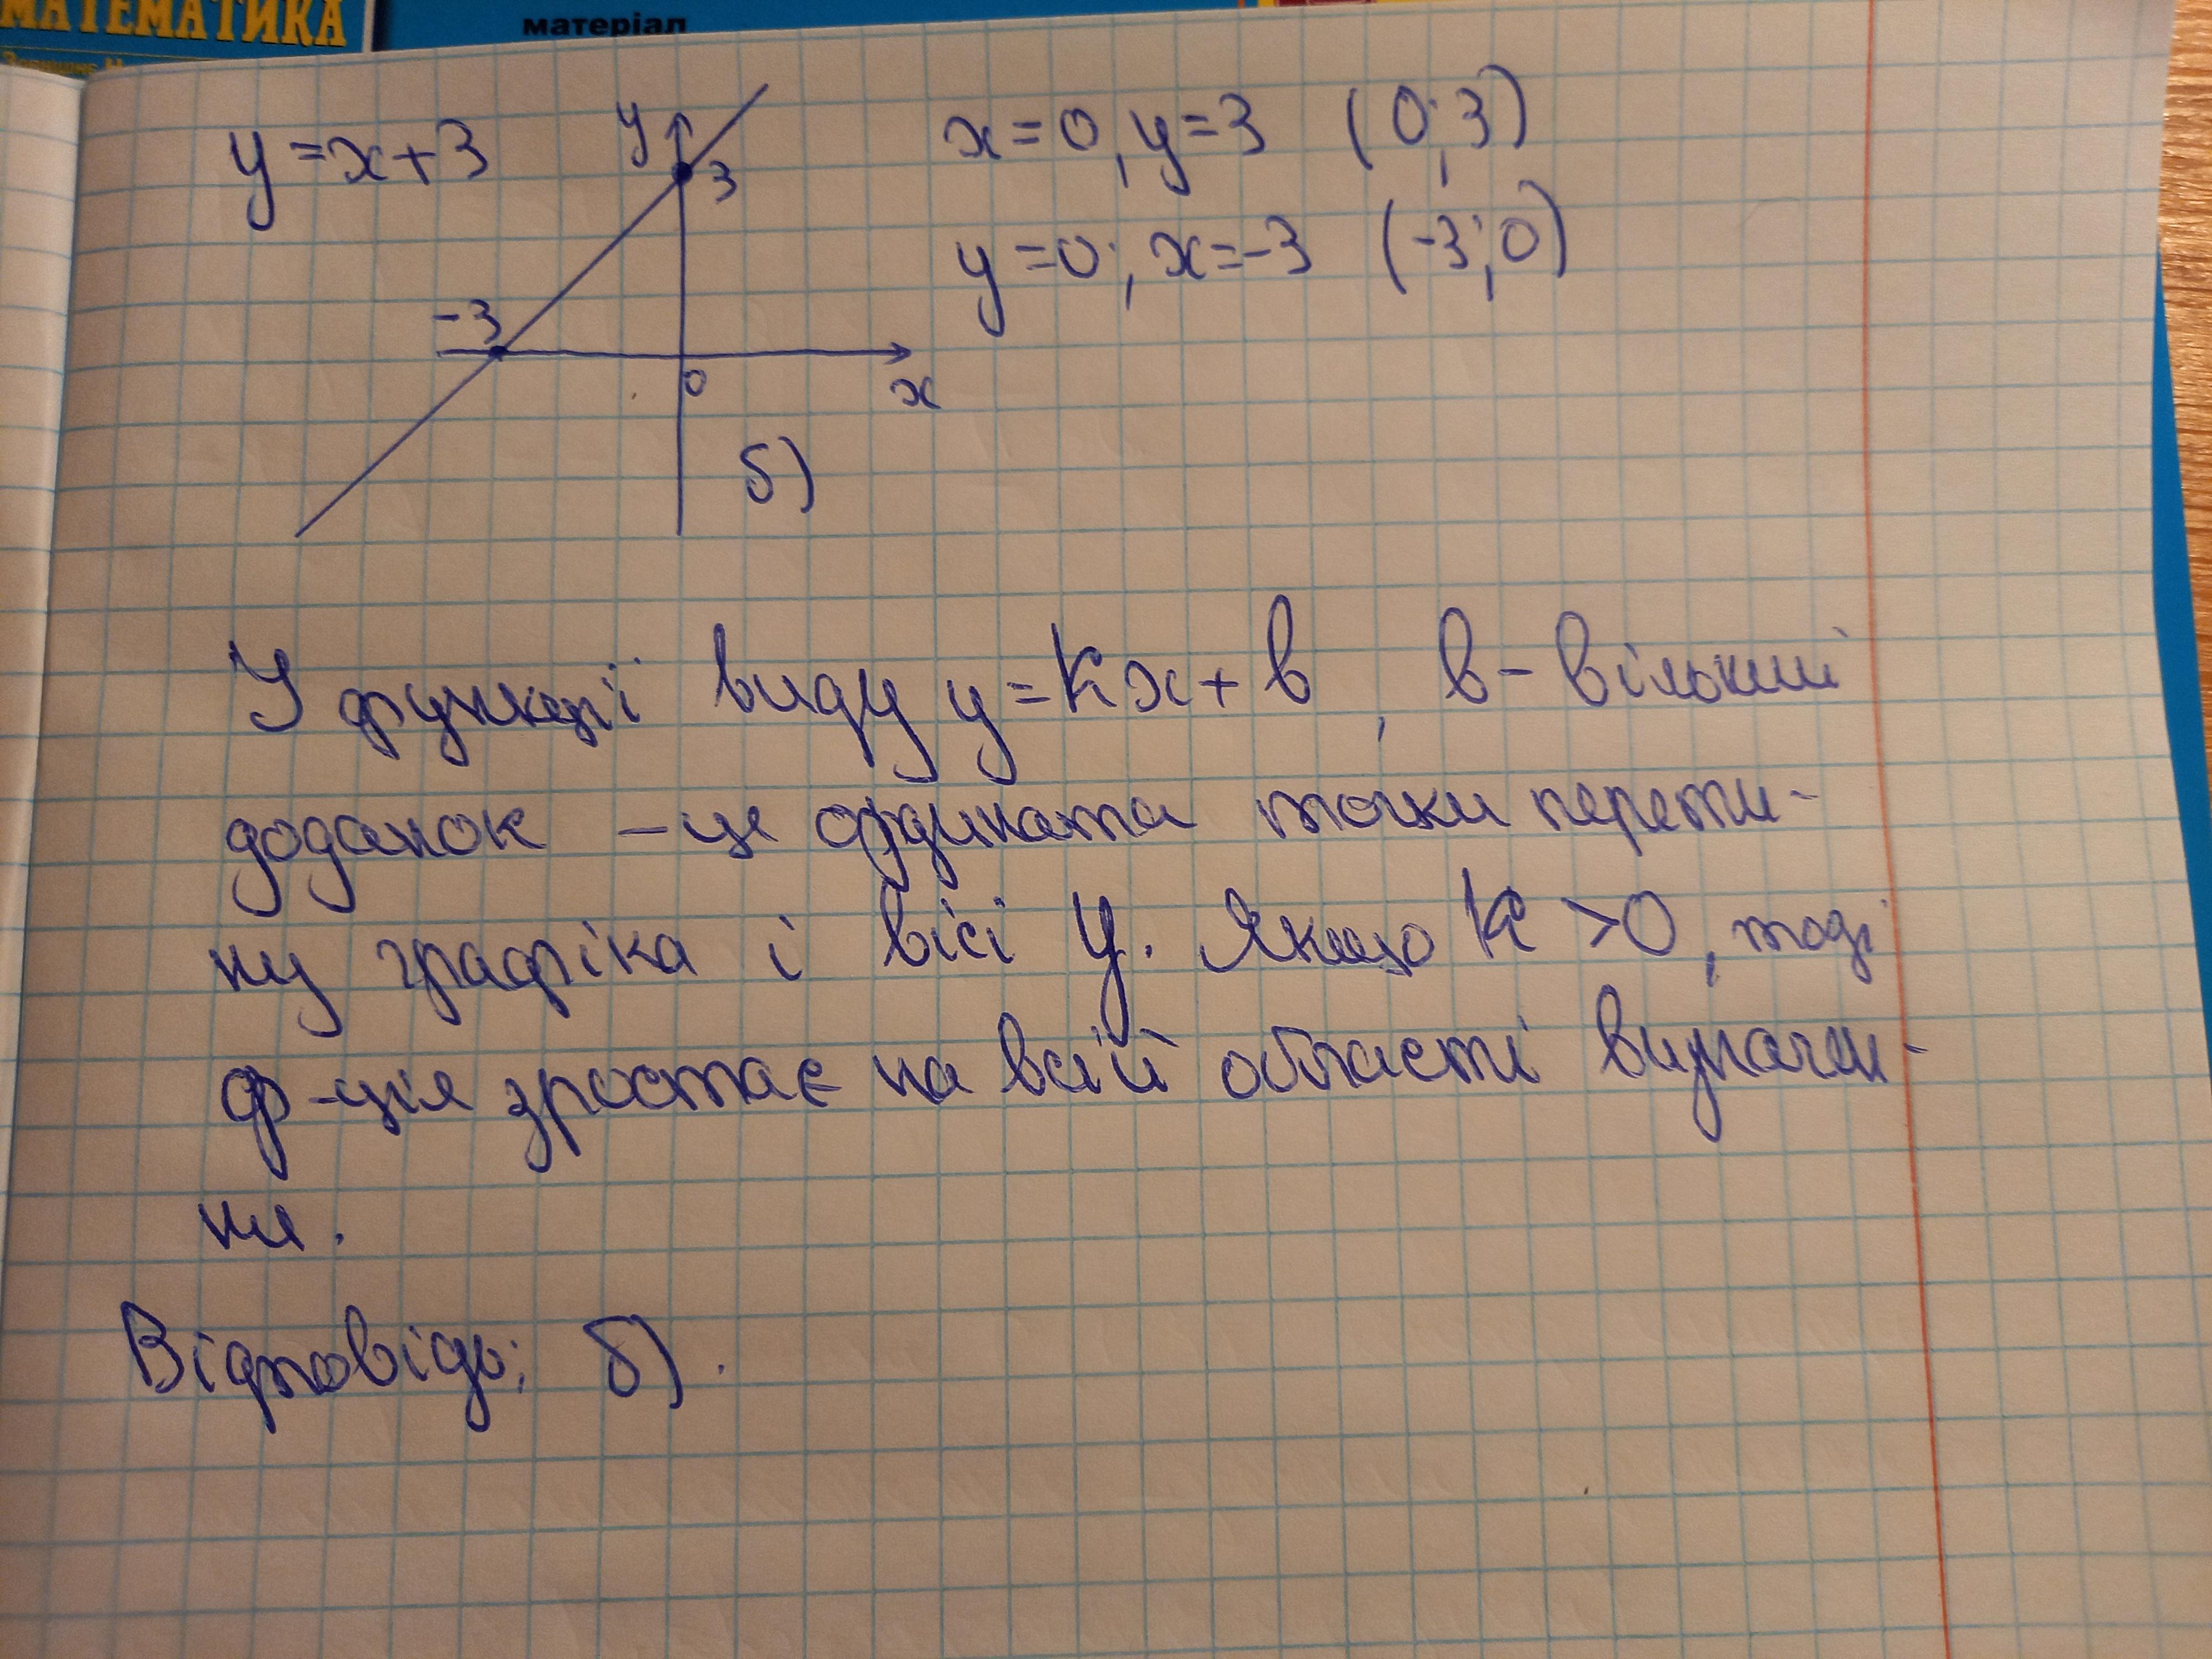 МАТЕМАТИКА
матеріал
y=x+3
y
3
-3
0
x
б)
x=0, y=3 (0;3)
y=0; x=-3 (-3;0)
У функції виду y=kx+в, в-вільний
доданок - це ордината точки перети-
ну графіка і вісі y. Якщо k>0, тоді
ф-ція зростає на всій області визначен-
ня.
Відповідь: б).